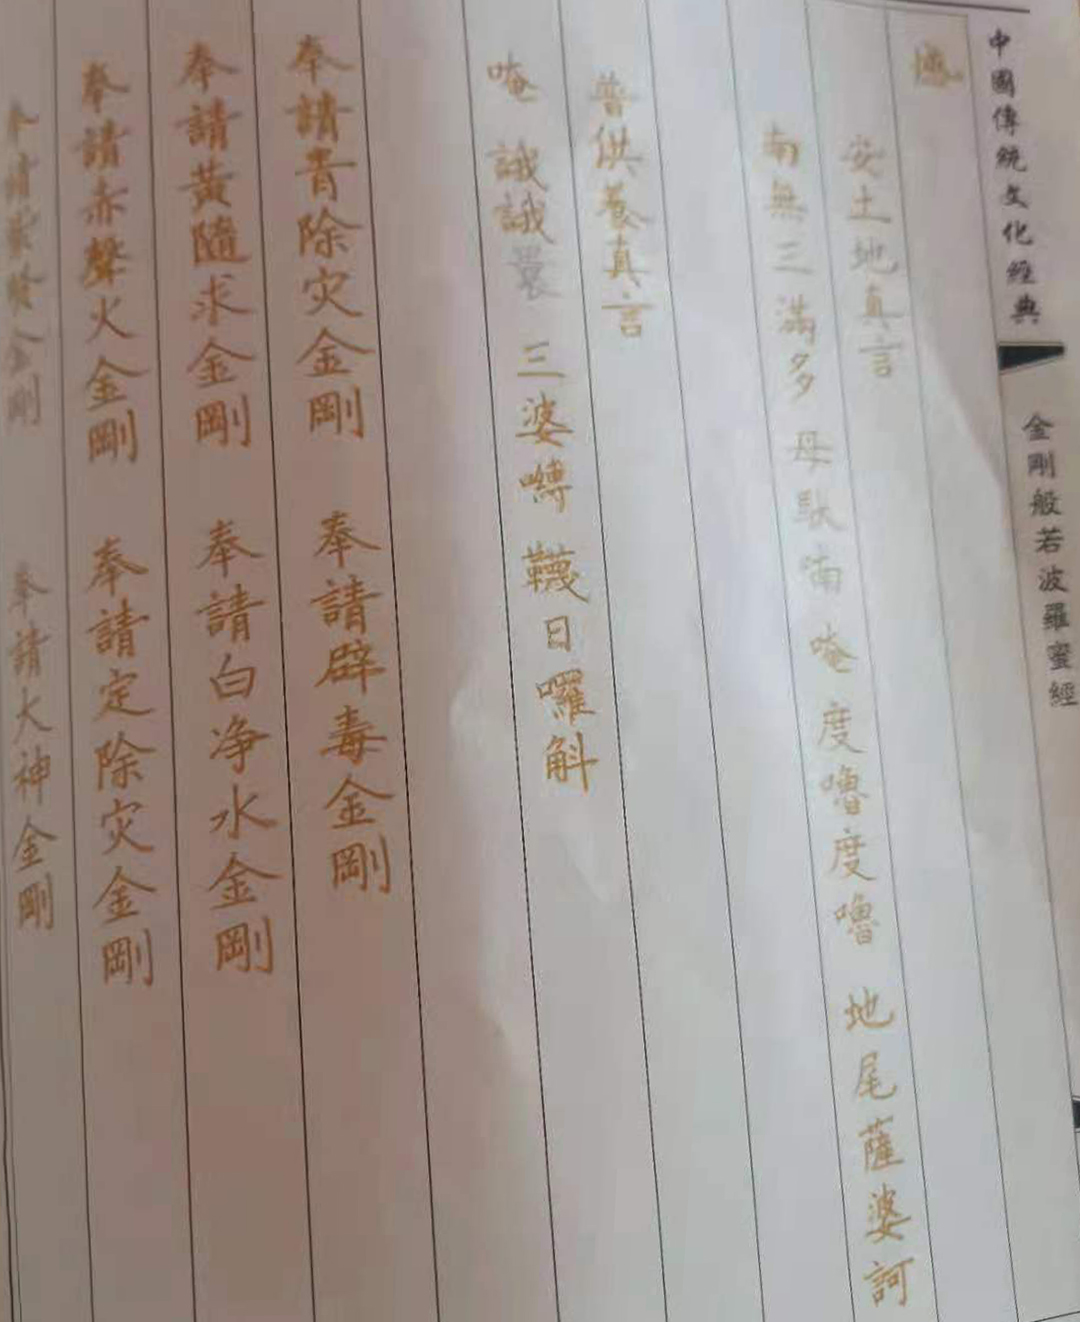 中國傳統文化經典
金剛般若波羅蜜經
安土地真言
南無三滿多 母馱喃 唵 度嚕度嚕 地尾薩婆訶
普供養真言
唵 誐誐曩 三婆嚩 韈日囉斛
奉請青除灾金剛 奉請辟毒金剛
奉請黃隨求金剛 奉請白净水金剛
奉請赤聲火金剛 奉請定除灾金剛
奉請紫賢金剛 奉請大神金剛